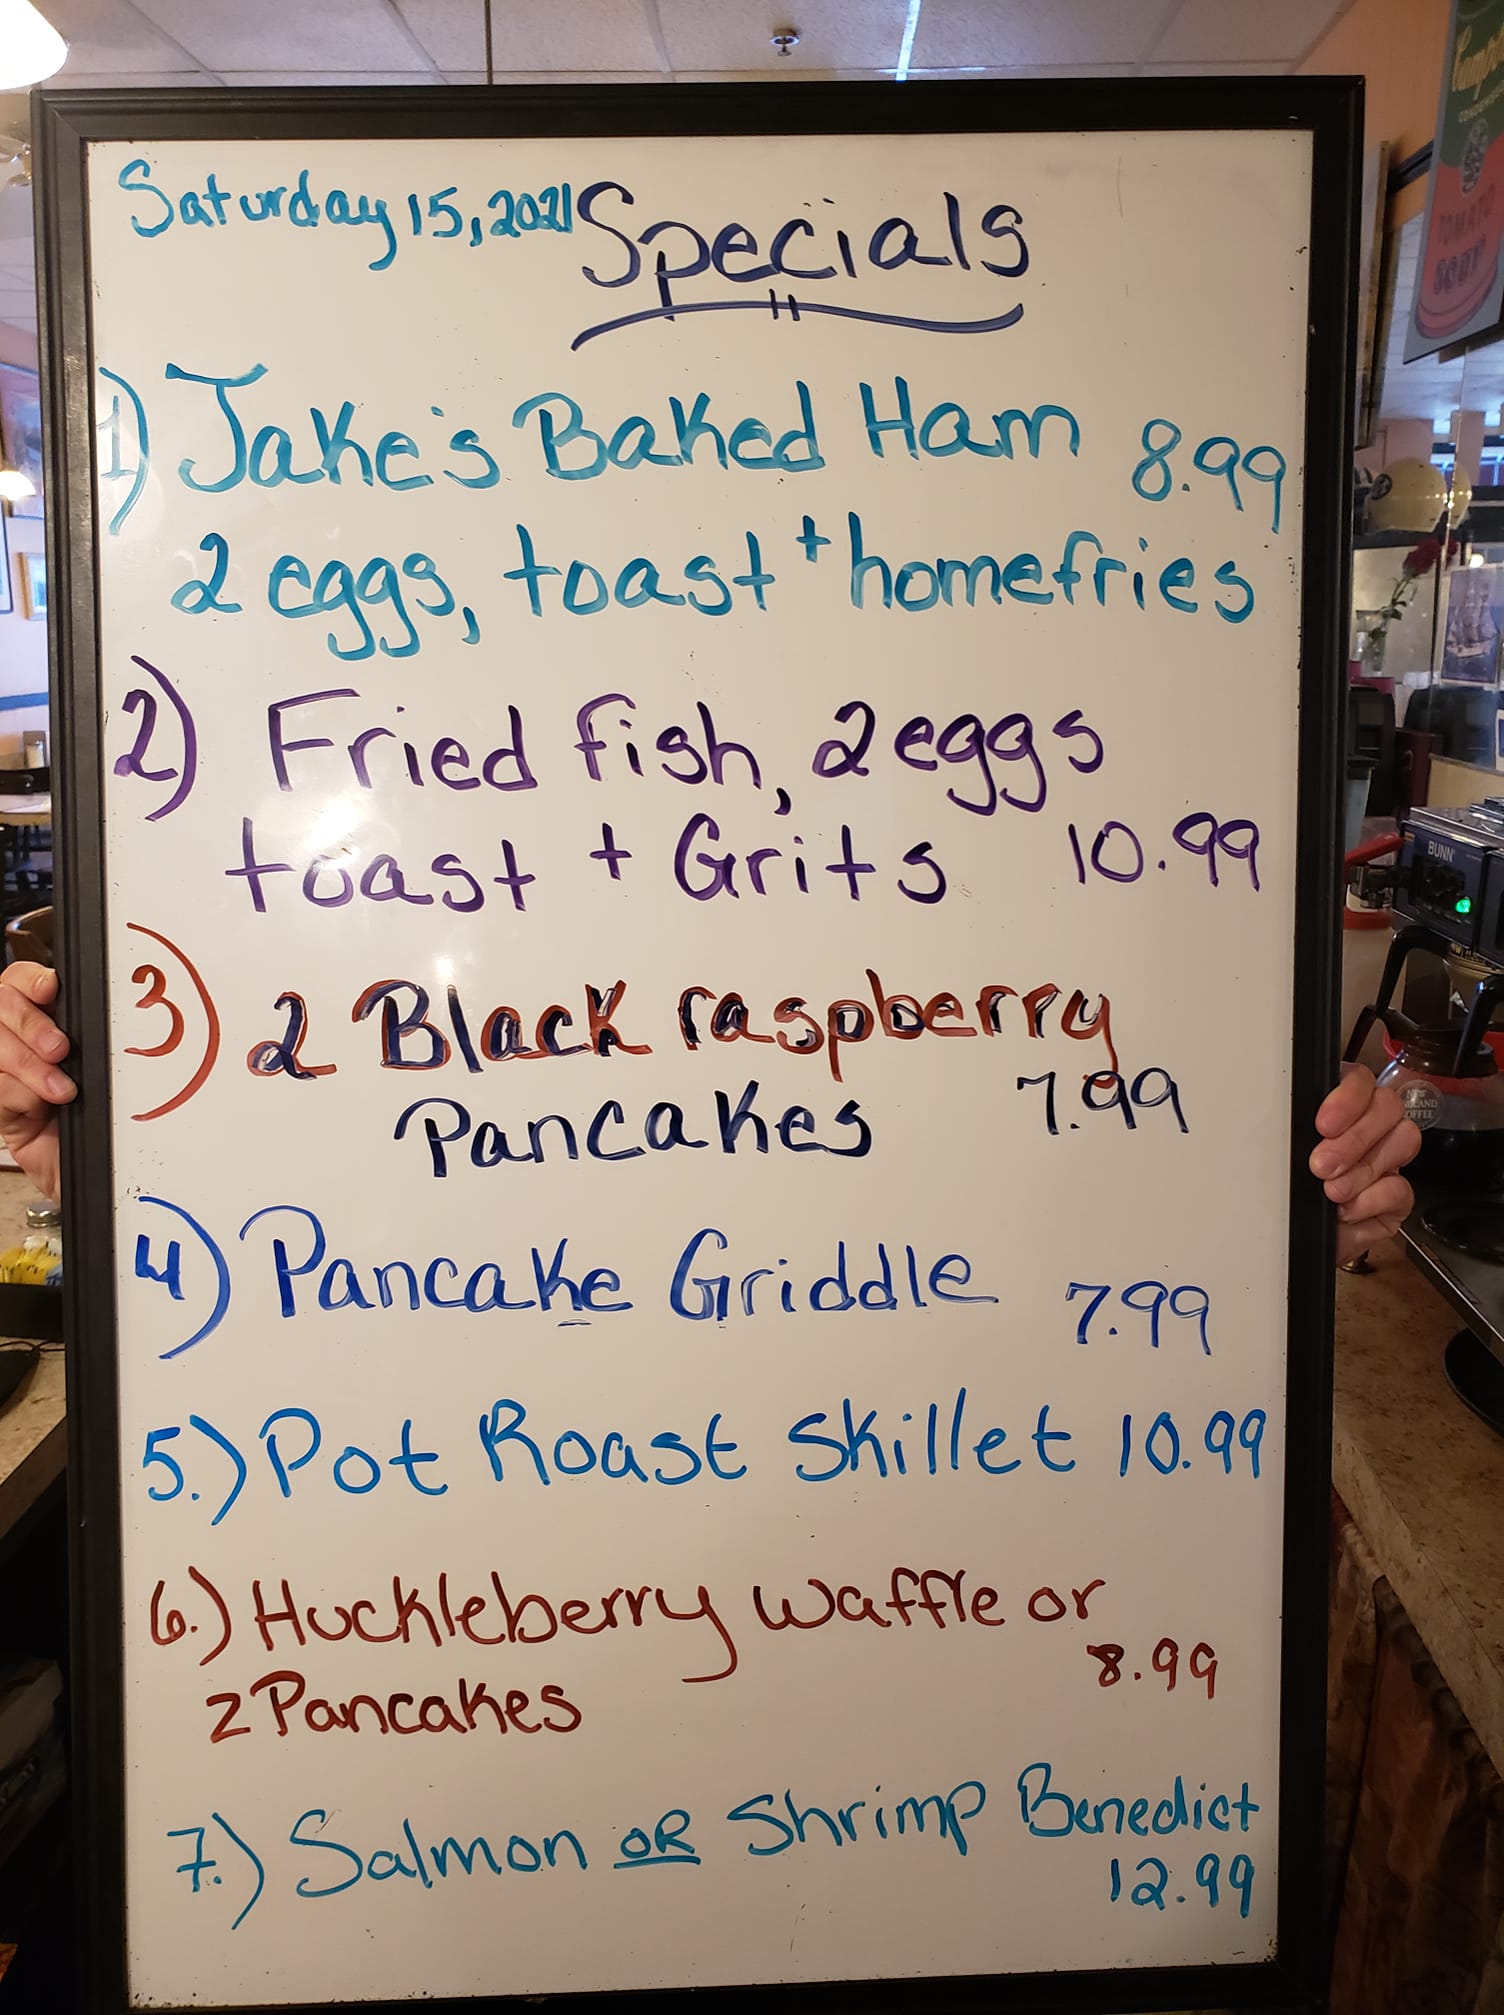 Saturday 15, 2021 Specials
1) Jake's Baked Ham 8.99
2 eggs, toast + homefries
2) Fried fish, 2 eggs
toast + Grits 10.99
3) 2 Black raspberry
Pancakes 7.99
4) Pancake Griddle 7.99
5.) Pot Roast Skillet 10.99
6.) Huckleberry Waffle or
2 Pancakes 8.99
7.) Salmon OR Shrimp Benedict
12.99
Campbell's
CONDENSED
TOMATO
SOUP
BUNN
NEW
ENGLAND
COFFEE